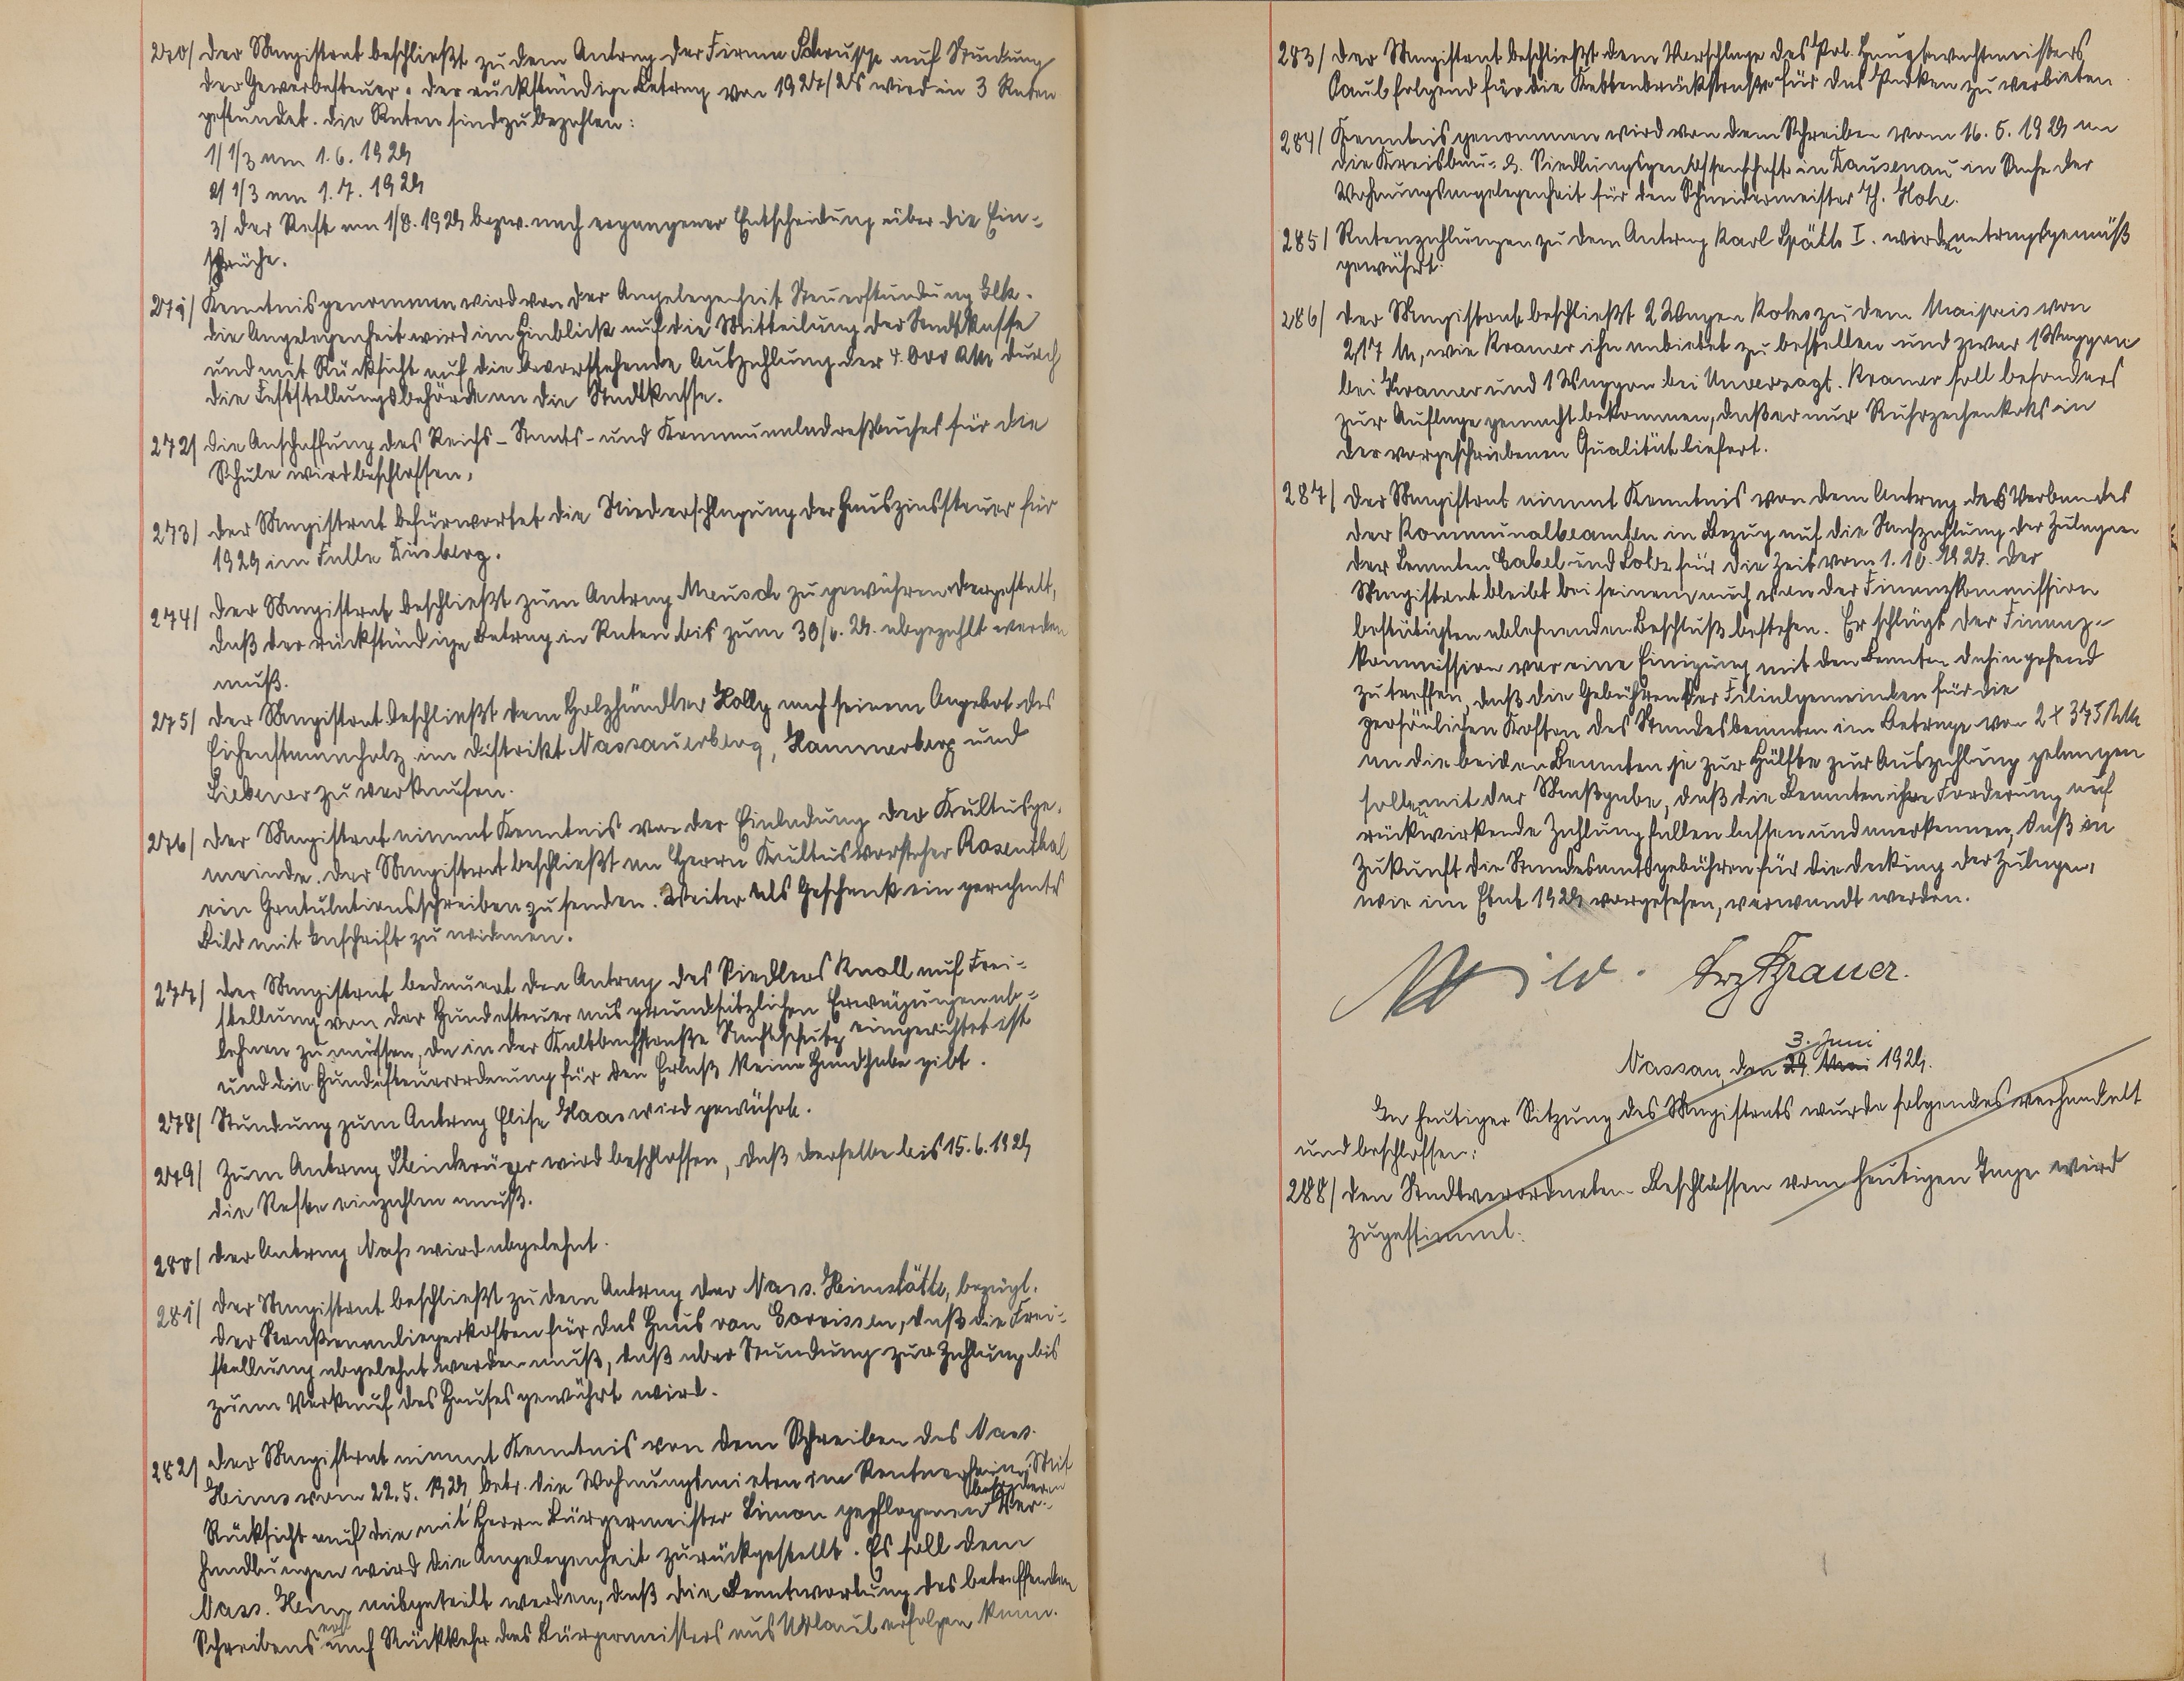 270/ Der Magistrat beschließt zu dem Antrag der Firma Schrupp auf Stundung
der Gewerbesteuer. Der rückständige Betrag von 1927/28 wird in 3 Raten
gestundet. Die Raten sind zu bezahlen:
1/ 1/3 am 1.6.1929
2/ 1/3 am 1.7.1929
3/ der Rest am 1/8.1929 bezw. nach ergangener Entscheidung über die Ein-
sprüche.
271/ Kenntnis genommen wird von der Angelegenheit Steuerstundung
Die Angelegenheit wird im Hinblick auf die Mitteilung der Stadtkasse
und mit Rücksicht auf die bevorstehende Auszahlung der 4.000 RM durch
die Feststellungsbehörde an die Stadtkasse.
272/ Die Anschaffung des Reichs- Staats- und Kommunaladreßbuches für die
Schule wird beschlossen.
273/ Der Magistrat befürwortet die Niederschlagung der Hauszinssteuer für
1929 im Falle Düsberg.
274/ Der Magistrat beschließt zum Antrag Meusch zu gewähren dergestalt,
daß der rückständige Betrag in Raten bis zum 30/6. 29. abgezahlt werden
muß.
275/ Der Magistrat beschließt dem Holzhändler Holly nach seinem Angebot das
Eichenstammholz im Distrikt Nassauerberg, Hammerberg und
zu verkaufen.
276/ Der Magistrat nimmt Kenntnis von der Einladung der Kultusge-
meinde. Der Magistrat beschließt an Herrn Kultusvorsteher Rosenthal
ein Gratulationsschreiben zu senden. Weiter als Geschenk ein gerahmtes
Bild mit Inschrift zu widmen.
277/ Der Magistrat bedauert den Antrag des Siedlers Knoll auf Frei-
stellung von der Hundesteuer aus grundsätzlichen Erwägungen ab-
lehnen zu müssen, da in der Kaltbachstraße Nachtschutz eingerichtet ist
und die Hundesteuerordnung für den Erlaß keine Handhabe gibt.
278/ Stundung zum Antrag Elise Haas wird gewährt.
279/ Zum Antrag Steinkrüger wird beschlossen, daß derselbe bis 15.6.1929
die Reste einzahlen muß.
280/ Der Antrag Noh wird abgelehnt.
281/ Der Magistrat beschließt zu dem Antrag der Nass. Heimstätte, bezügl.
der Straßenanliegerkosten für das Haus von Gorrissen, daß die Frei-
stellung abgelehnt werden muß, daß aber Stundung zur Zahlung bis
zum Verkauf des Hauses gewährt wird.
282/ Der Magistrat nimmt Kenntnis von dem Schreiben des Nass.
Heims vom 22.5.1929, betr. die Wohnungsmieten im Rentnerheim. Mit
besonderer
Rücksicht auf die mit Herrn Bürgermeister Simon gepflogenen Ver-
handlungen wird die Angelegenheit zurückgestellt. Es soll dem
Nass. Heim mitgeteilt werden, daß die Beantwortung des betreffenden
erst
Schreibens nach Rückkehr des Bürgermeisters aus Urlaub erfolgen kann.
283/ Der Magistrat beschließt dem Vorschlage des Pol. Hauptwachtmeisters
Paul folgend für die Kettenbrückstraße für das Parken zu verbieten
284/ Kenntnis genommen wird von dem Schreiben vom 16.5.1929 an
die Kreisbau- & Siedlungsgenossenschaft in Dausenau in Sache der
Wohnungsangelegenheit für den Schneidermeister Th. Hohe.
285/ Ratenzahlungen zu dem Antrag Karl Späth I. werden antragsgemäß
gewährt.
286/ Der Magistrat beschließt 2 Wagen Koks zu dem Maipreis von
2,17 M, wie Kramer ihn anbietet zu bestellen und zwar 1 Waggon
bei Kramer und 1 Waggon bei Unverzagt. Kramer soll besonders
zur Auflage gemacht bekommen, daß er nur Ruhrzechenkoks in
der vorgeschriebenen Qualität liefert.
287/ Der Magistrat nimmt Kenntnis von dem Antrag des Verbandes
der Kommunalbeamten in Bezug auf die Nachzahlung der Zulagen
der Beamten Gabel und Lotz für die Zeit vom 1.10.1927. Der
Magistrat bleibt bei seinem auch von der Finanzkommission
bestätigten ablehnenden Beschluß bestehen. Er schlägt der Finanz-
kommission vor eine Einigung mit den Beamten dahingehend
zu treffen, daß die Gebühren der Filialgemeinden für die
persönlichen Kosten des Standesbeamten im Betrage von 2 x 375 RM
an die beiden Beamten je zur Hälfte zur Auszahlung gelangen
sollen mit der Maßgabe, daß die Beamten ihre Forderung auf
rückwirkende Zahlung fallen lassen und anerkennen, daß in
Zukunft die Standesamtsgebühren für die Deckung der Zulagen,
wie im Etat 1929 vorgesehen, verwandt werden.
3. Juni
Nassau, den 29. Mai 1929.
In heutiger Sitzung des Magistrats wurde folgendes verhandelt
und beschlossen:
288/ Den Stadtverordneten-Beschlüssen vom heutigen Tage wird
zugestimmt.